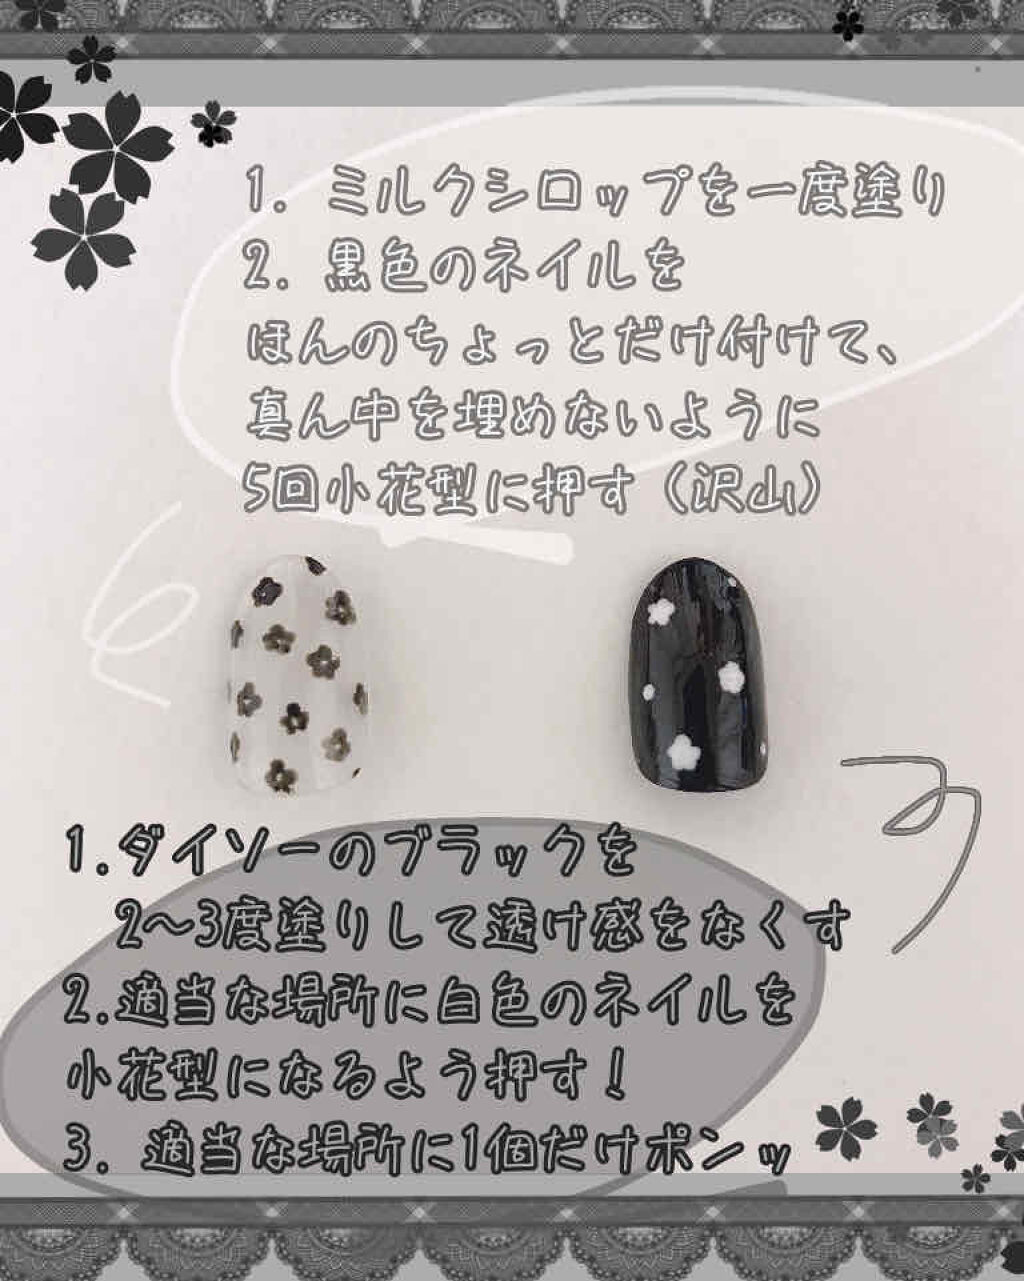 1. ミルクシロップを一度塗り
2. 黒色のネイルを
ほんのちょっとだけ付けて、
真ん中を埋めないように
5回小花型に押す（沢山）
1.ダイソーのブラックを
2〜3度塗りして透け感をなくす
2.適当な場所に白色のネイルを
小花型になるよう押す！
3. 適当な場所に1個だけポンッ